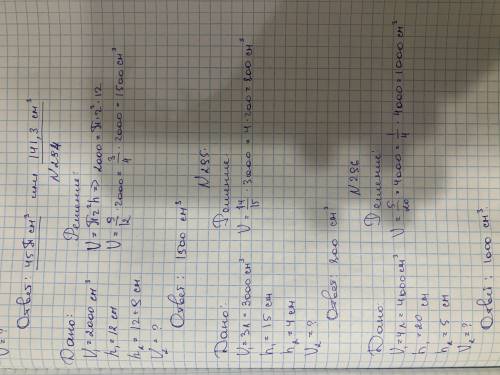 V = ?
Ответ: 45π см³ или 141,3 см³
N 294
Дано:
V₁ = 2000 см³
h₁ = 12 см
h₂ = 12 - 9 см
V₂ = ?
Решение:
V = πr²h => 2000 = π·r²·12
V = 9/12 · 2000 = 3/4 · 2000 = 1500 см³
Ответ: 1500 см³
N 295.
Дано:
V₁ = 3л = 3000 см³
h₁ = 15 см
h₂ = 4 см
V₂ = ?
Решение:
V = 4/15 · 3000 = 4 · 200 = 800 см³
Ответ: 800 см³
N 296
Дано:
V₁ = 4л = 4000 см³
h₁ = 20 см
h₂ = 5 см
V₂ = ?
Решение:
V = 5/20 · 4000 = 1/4 · 4000 = 1000 см³
Ответ: 1000 см³